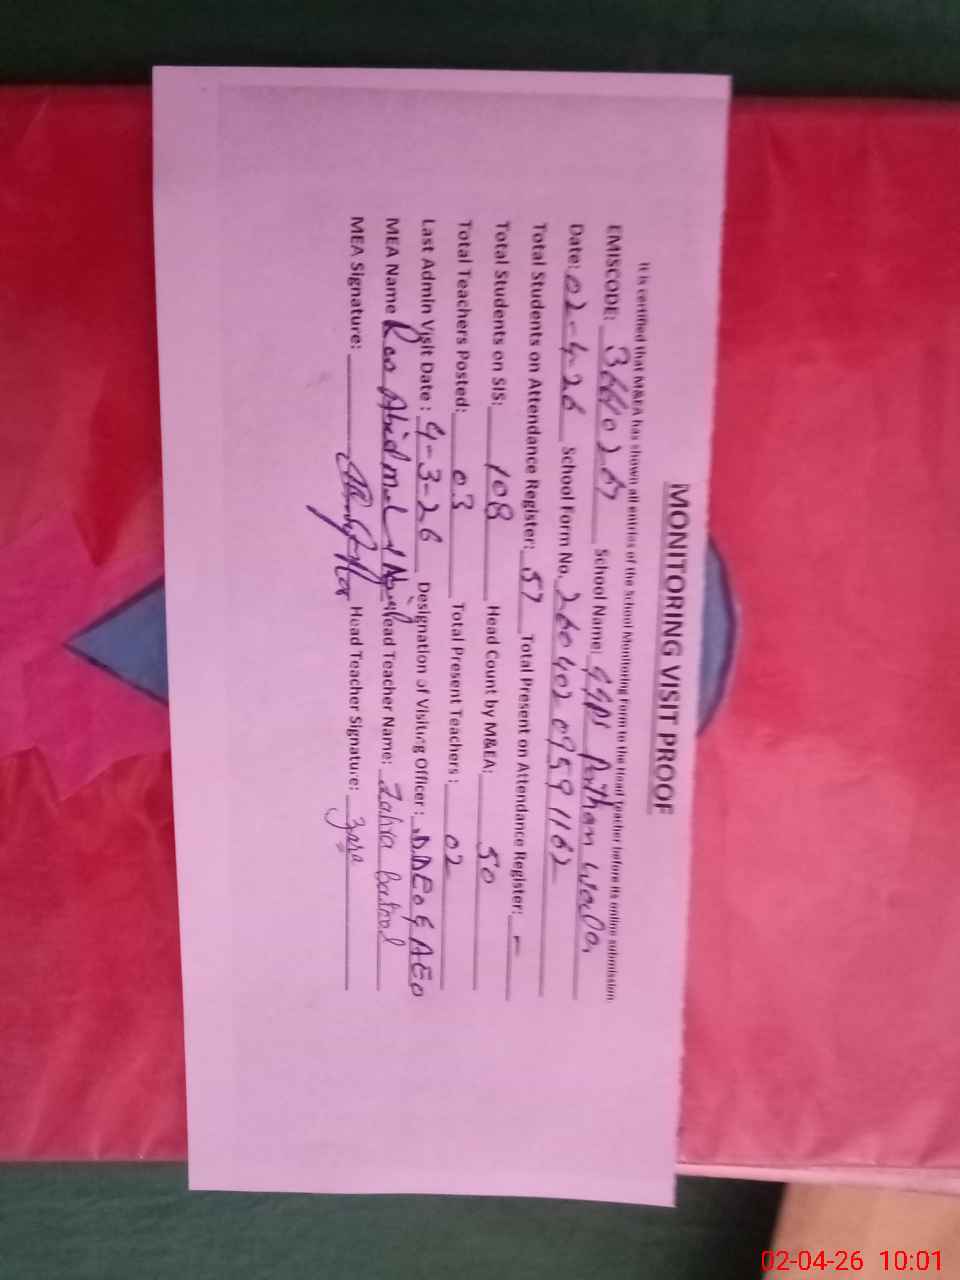 MONITORING VISIT PROOF
It is certified that M&EA has shown all entries of the School Monitoring Form to the Head Teacher before its online submission.
EMISCODE: School Name: GGPS Pathan Wala
Date: 02-4-26 School Form No. 26040209591162
Total Students on Attendance Register: 57 Total Present on Attendance Register: -
Total Students on SIS: 108 Head Count by M&EA: 50
Total Teachers Posted: 03 Total Present Teachers: 02
Last Admin Visit Date: 9-3-26 Designation of Visiting Officer: DDEO & AEO
MEA Name Rao Head Teacher Name: Zahra Batool
MEA Signature: Head Teacher Signature: Zahra
02-04-26 10:01